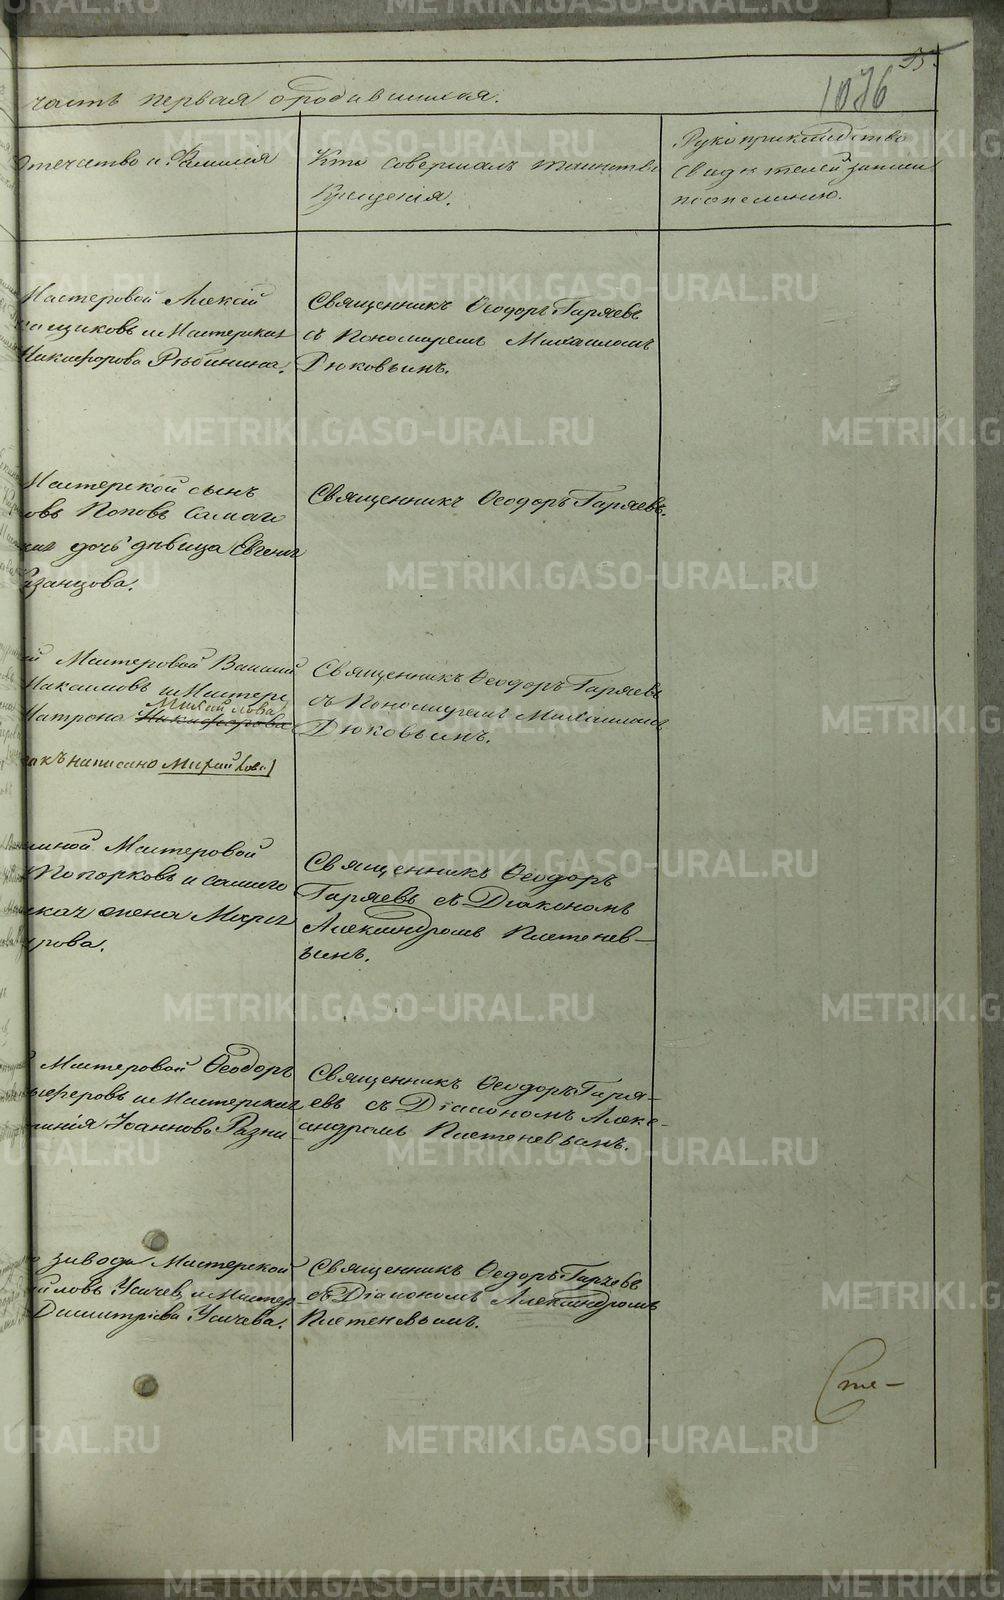 METRIKI.GASO-URAL.RU
1076
часть первая о родившихся.
Отечество и Фамилія
Кто совершалъ таинство
Крещенія.
Рукоприкладство
свидѣтелей записи
по желанію.
Мастеровой Алексѣй
щиковъ и Мастерская
Никифорова Рябинина.
Священникъ Ѳеодоръ Гаряевъ
съ Пономаремъ Михаиломъ
Дюковымъ.
Мастерской сынъ
овъ Поповъ самаго
кая дочь дѣвица Евгенія
занцова.
Священникъ Ѳеодоръ Гаряевъ.
й Мастеровой Василій
Максимовъ и Мастерс
Михайлова
Матрона Никифорова
акъ написано Михайлова)
Священникъ Ѳеодоръ Гаряевъ
съ Пономаремъ Михаиломъ
Дюковымъ.
Мастеровой
Попорковъ и самаго
ская жена Марѳа
рова.
Священникъ Ѳеодоръ
Гаряевъ съ Діакономъ
Александромъ Плетенев-
ымъ.
й Мастеровой Ѳеодоръ
и Мастерская
Іоаннова Разни-
Священникъ Ѳеодоръ Гаря-
евъ съ Діакономъ Алекс-
андромъ Плетеневымъ.
завода Мастерской
йловъ Усачев, и Мастер-
Димитріева Усачева.
Священникъ Ѳедоръ Гаряевъ
съ Діакономъ Александромъ
Плетеневымъ.
Сте-